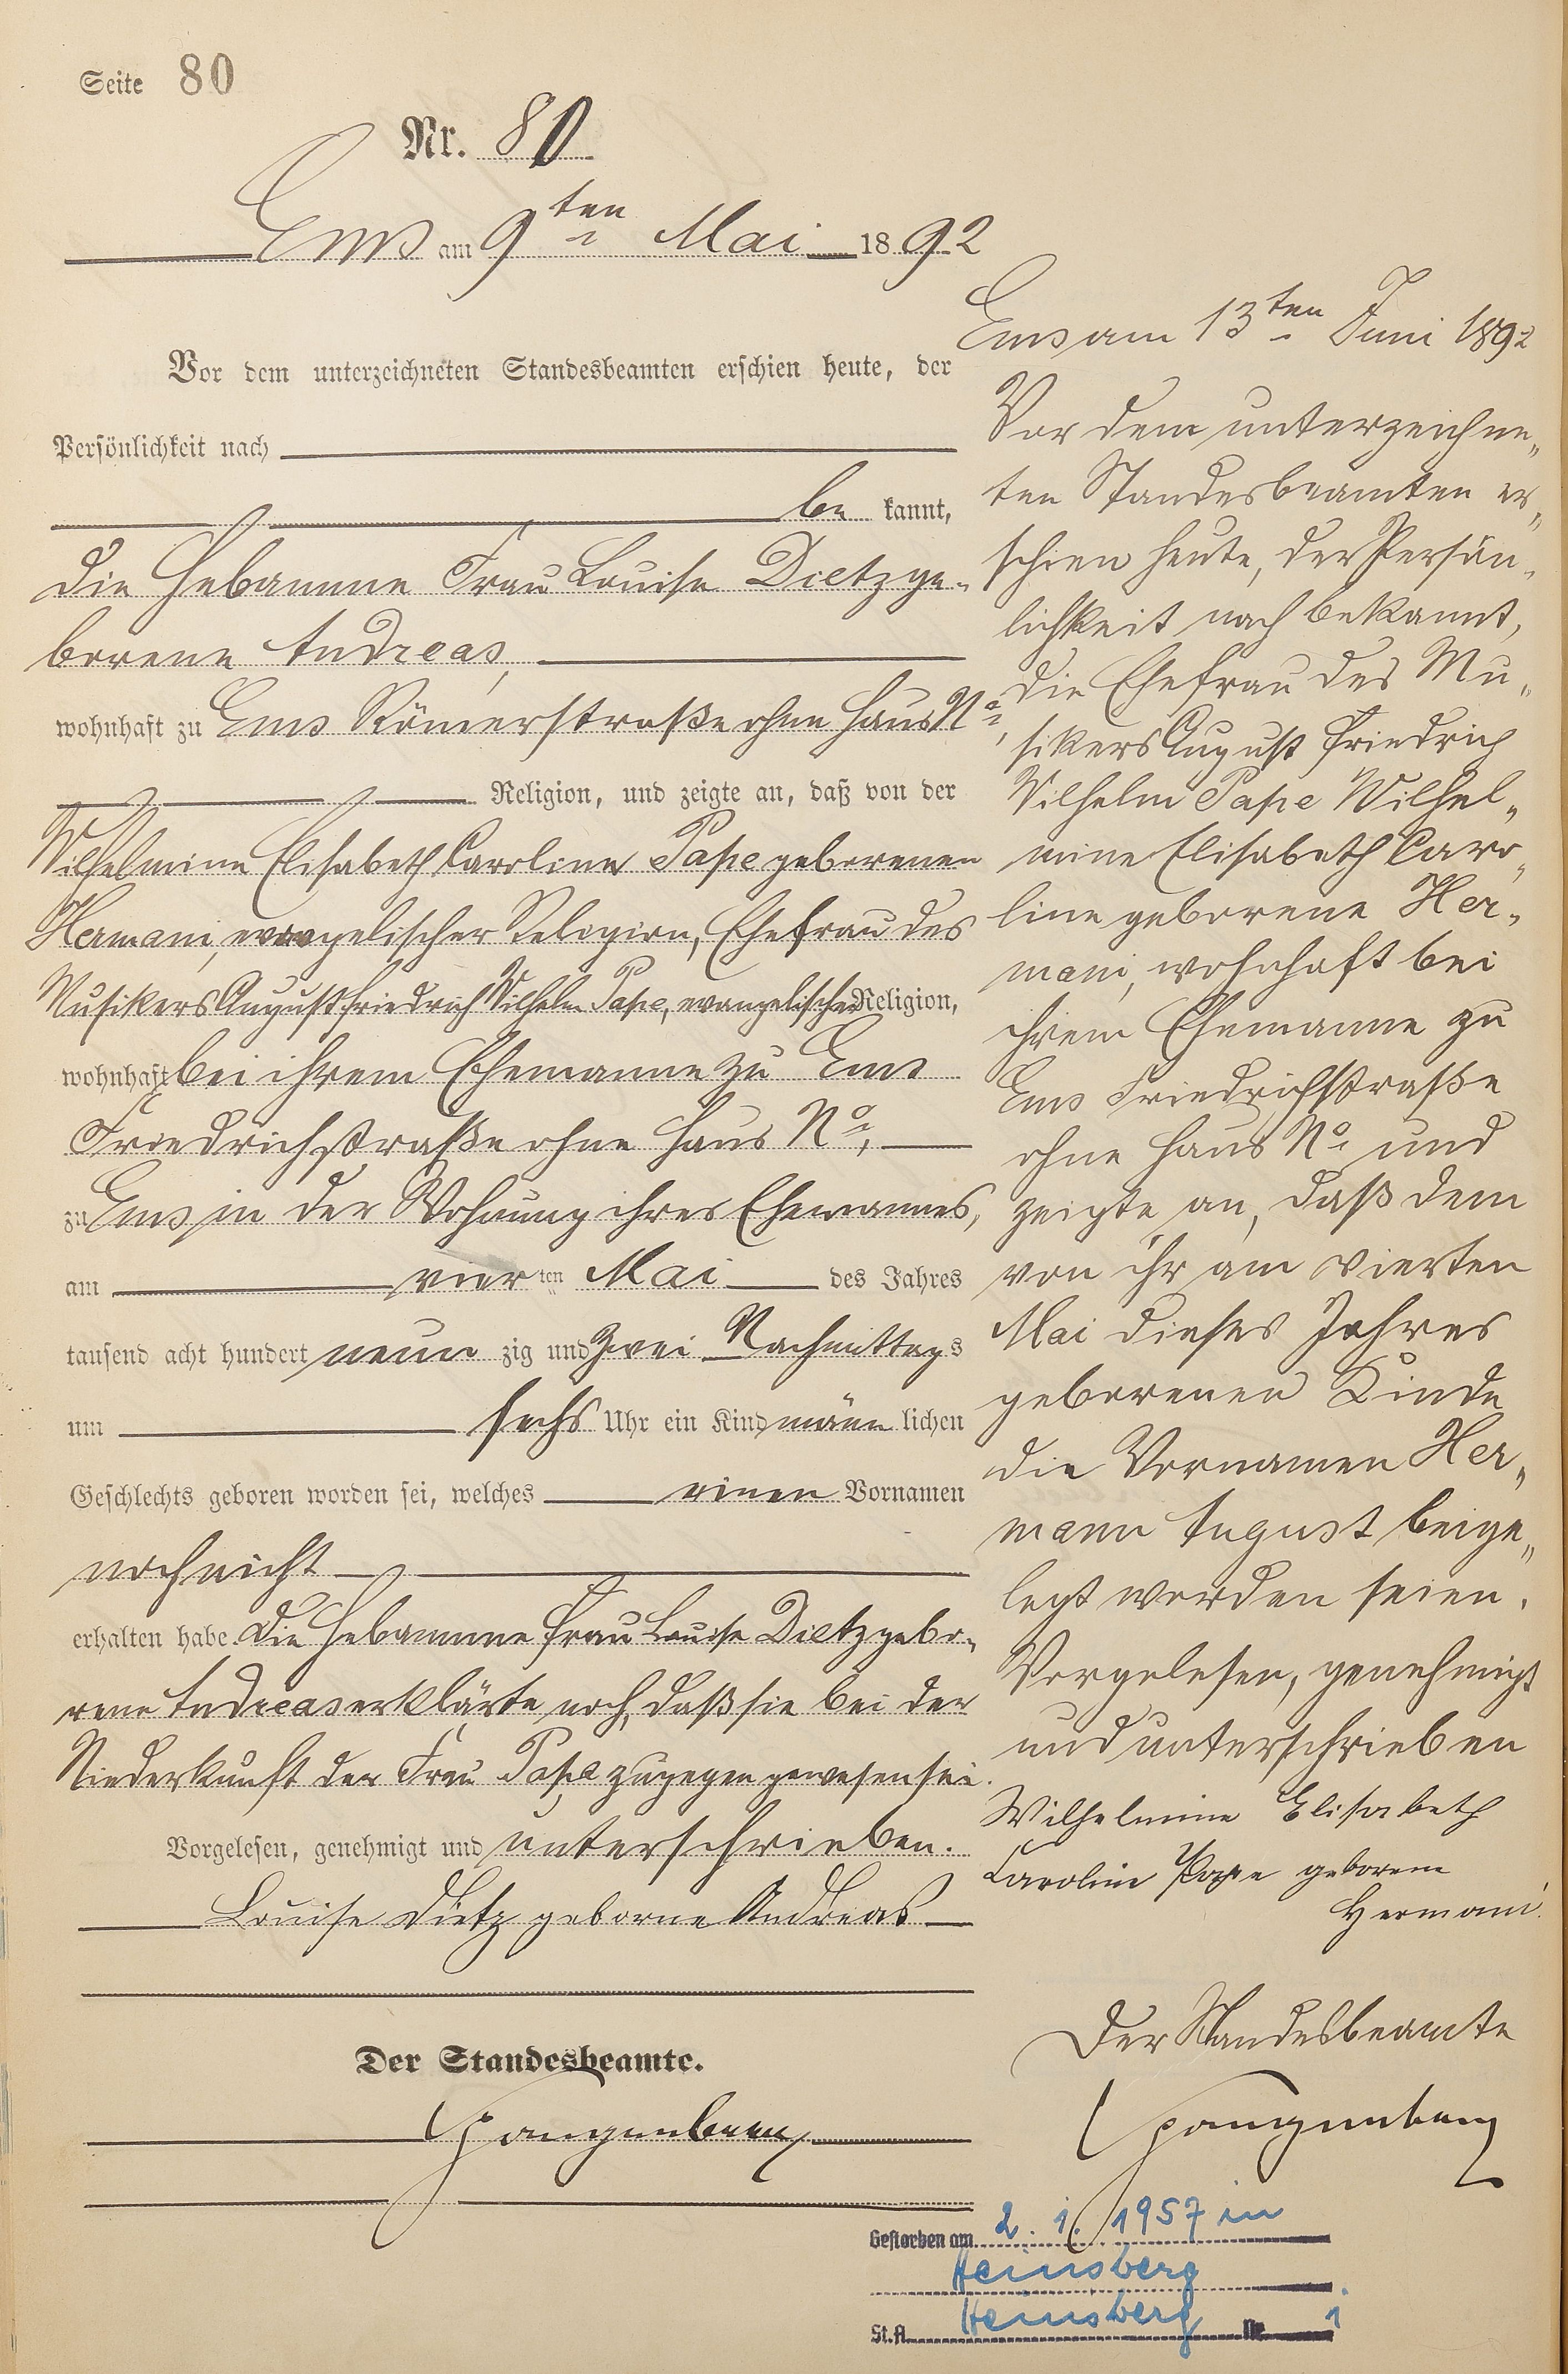 Seite 80
Nr. 80
Ems am 9ten Mai 1892
Vor dem unterzeichneten Standesbeamten erschien heute, der
Persönlichkeit nach
be kannt,
die Hebamme Frau Louise Dietz ge-
borene Andreas,
wohnhaft zu Ems Römerstraße ohne Haus No,
Religion, und zeigte an, daß von der
Wilhelmine Elisabeth Caroline Pape geborenen
Hermani, evangelischer Religion, Ehefrau des
Musikers August Friedrich Wilhelm Pape, evangelischer Religion,
wohnhaft bei ihrem Ehemanne zu Ems
Friedrichstraße ohne Haus No,
zu Ems in der Wohnung ihres Ehemannes,
am vier ten Mai des Jahres
tausend acht hundert neun zig und zwei Nachmittags
um sechs Uhr ein Kind männ lichen
Geschlechts geboren worden sei, welches einen Vornamen
noch nicht
erhalten habe. Die Hebamme Frau Louise Dietz gebo-
rene Andreas erklärte noch, daß sie bei der
Niederkunft der Frau Pape zugegen gewesen sei.
Vorgelesen, genehmigt und unterschrieben.
Louise Dietz geborne Andreas
Der Standesbeamte.
Spangenberg
Ems am 13ten Juni 1892
Vor dem unterzeichne-
ten Standesbeamten er-
schien heute, der Persön-
lichkeit nach bekannt,
die Ehefrau des Mu-
sikers August Friedrich
Wilhelm Pape Wilhel-
mine Elisabeth Caro-
line geborene Her-
mani, wohnhaft bei
ihrem Ehemanne zu
Ems Friedrichstraße
ohne Haus No und
zeigte an, daß dem
von ihr am vierten
Mai dieses Jahres
geborenen Kinde
die Vornamen Her-
mann August beige-
legt worden seien.
Vorgelesen, genehmigt
und unterschrieben
Wilhelmine Elisabeth
Caroline Pape geborene
Hermani.
Der Standesbeamte
Spangenberg
Gestorben am 2. 1. 1957 in
Heinsberg
St.A. Heinsberg Nr. 1